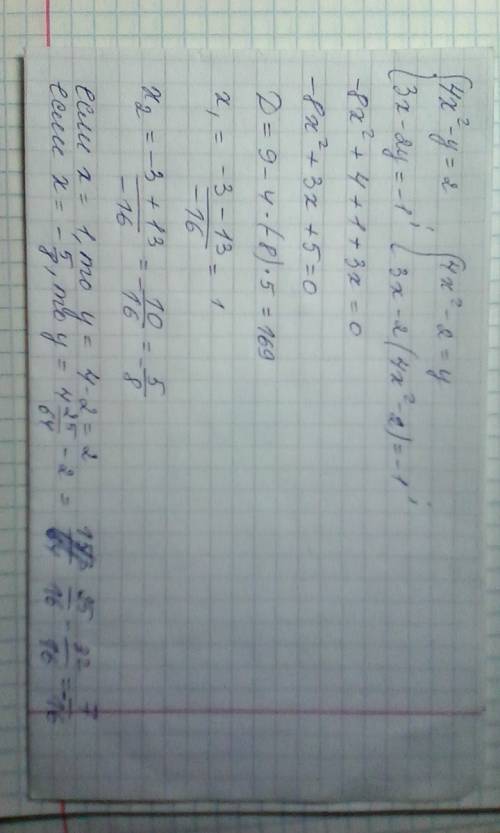 {4x² - y = 2 {4x² - 2 = y
{3x - 2y = -1 , {3x - 2(4x² - 2) = -1 ,
-8x² + 4 + 1 + 3x = 0
-8x² + 3x + 5 = 0
D = 9 - 4·(-8)·5 = 169
x₁ = (-3 - 13)/(-16) = 1
x₂ = (-3 + 13)/(-16) = -10/16 = -5/8
если x = 1, то y = 4 - 2 = 2
если x = -5/8, то y = 4 25/64 - 2 = 25/16 - 32/16 = -7/16